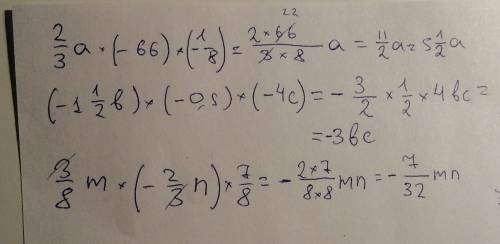 2/3 a × (-66) × (-1/8) = 2×66/3×8 a = 11/2 a = 5 1/2 a
22
(-1 1/2 в) × (-0,5) × (-4c) = - 3/2 × 1/2 × 4 вc =
= -3 вc
3/8 m × (- 2/3 n) × 7/8 = - 2×7/8×8 mn = - 7/32 mn